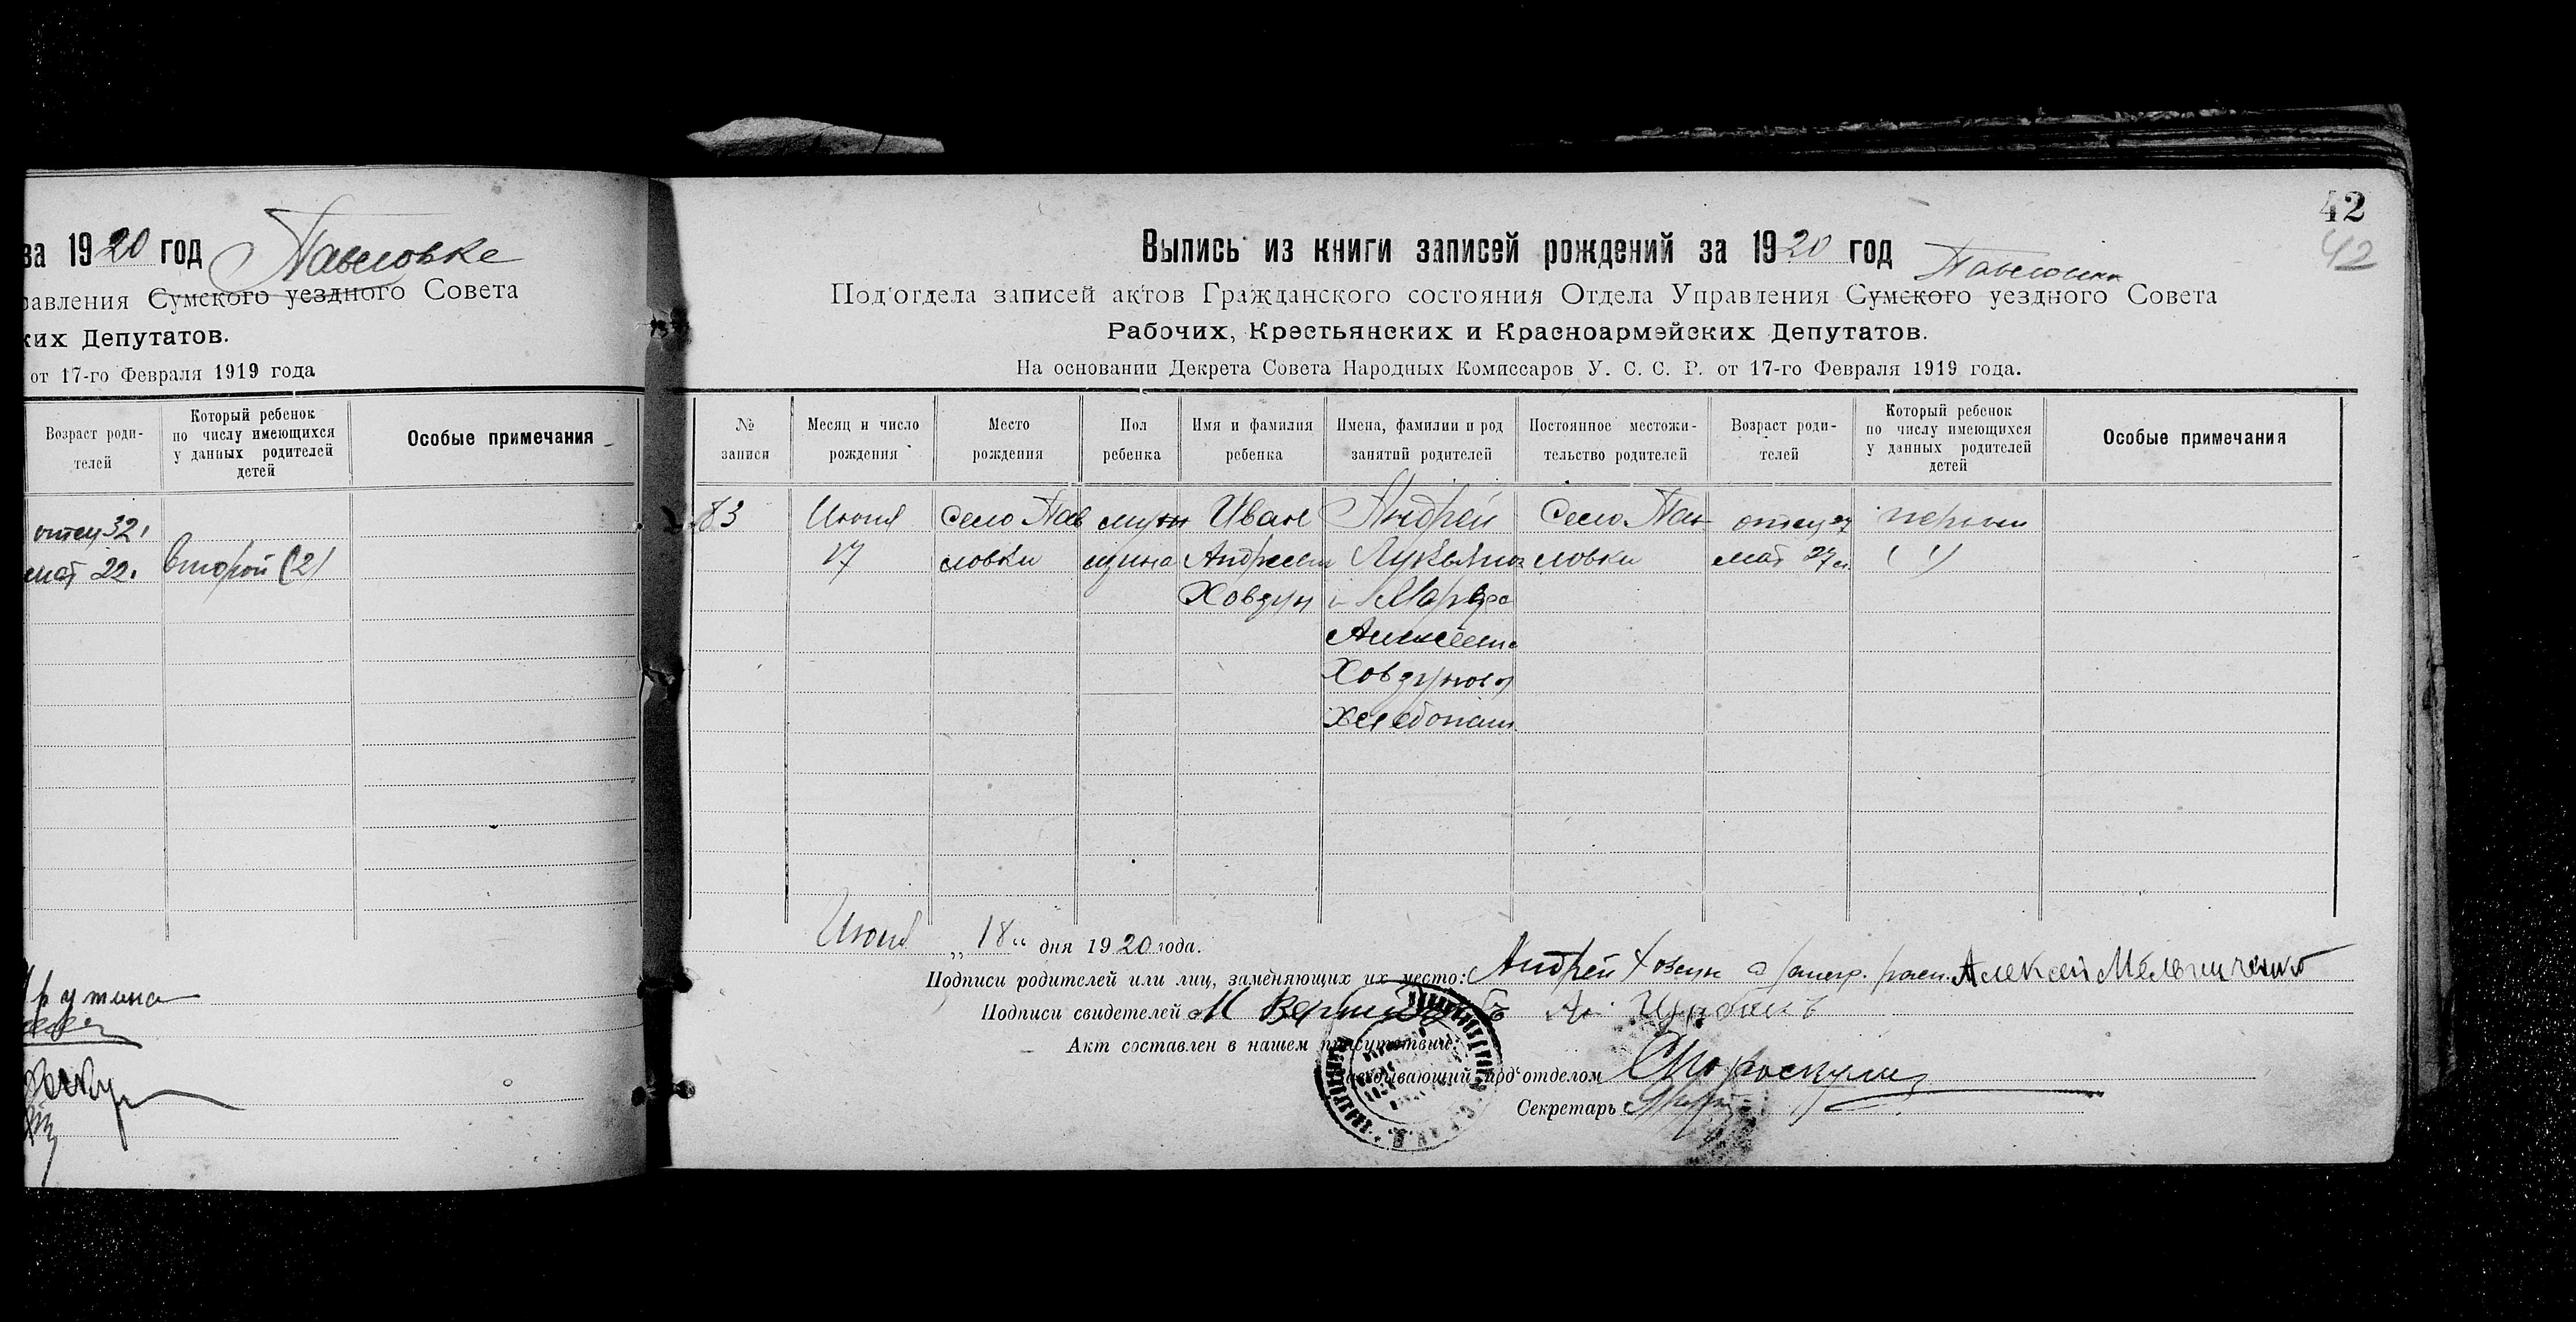 за 1920 год Павловке
равления Сумского уездного Совета
ких Депутатов.
от 17-го Февраля 1919 года
Возраст роди-
телей
Который ребенок
по числу имеющихся
у данных родителей
детей
Особые примечания
отец 32,
мат 22.
второй (2)
42
42
Выпись из книги записей рождений за 1920 год
Под'отдела записей актов Гражданского состояния Отдела Управления Сумского уездного Совета
Рабочих, Крестьянских и Красноармейских Депутатов.
На основании Декрета Совета Народных Комиссаров У. С. С. Р. от 17-го Февраля 1919 года.
№
записи
Месяц и число
рождения
Место
рождения
Пол
ребенка
Имя и фамилия
ребенка
Имена, фамилии и род
занятий родителей
Постоянное местожи-
тельство родителей
Возраст роди-
телей
Который ребенок
по числу имеющихся
у данных родителей
детей
Особые примечания
83
Июня
17
Село Пав
ловки
мущина
Иван
Андреев
Ховзун
Андрей
Лукьянов
и Марфа
Алексеевна
Ховзунова
Хлебопаш.
Село Пав
ловки
отец 27
мат 27
первый
(1)
Июня „18“ дня 1920 года.
Подписи родителей или лиц, заменяющих их место: Андрей Ховзун а Алексей Мельниченко
Подписи свидетелей М
Акт составлен в нашем присутствии:
Заведывающий под'отделом
Секретарь